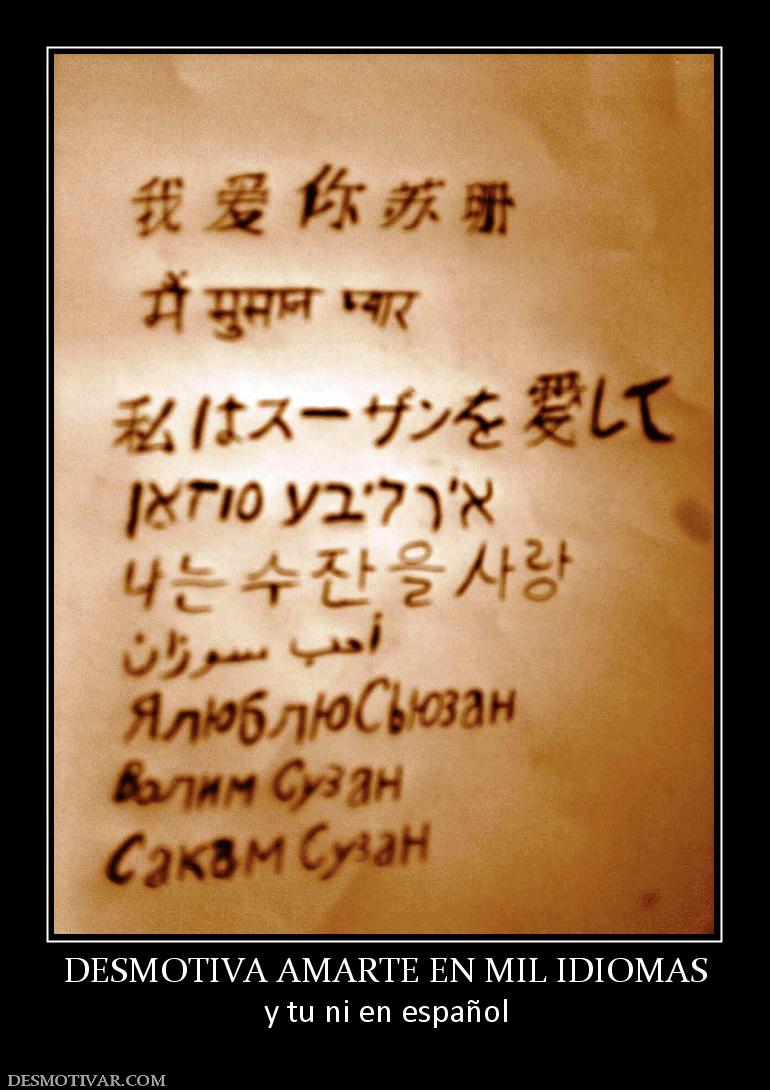 我爱你苏珊
मैं सुसान प्यार
私はスーザンを愛して
איך ליבע סוזאן
나는 수잔을 사랑
أحب سوزان
Я люблю Сьюзан
Волим Сузан
Сакам Сузан
DESMOTIVA AMARTE EN MIL IDIOMAS
y tu ni en español
DESMOTIVAR.COM